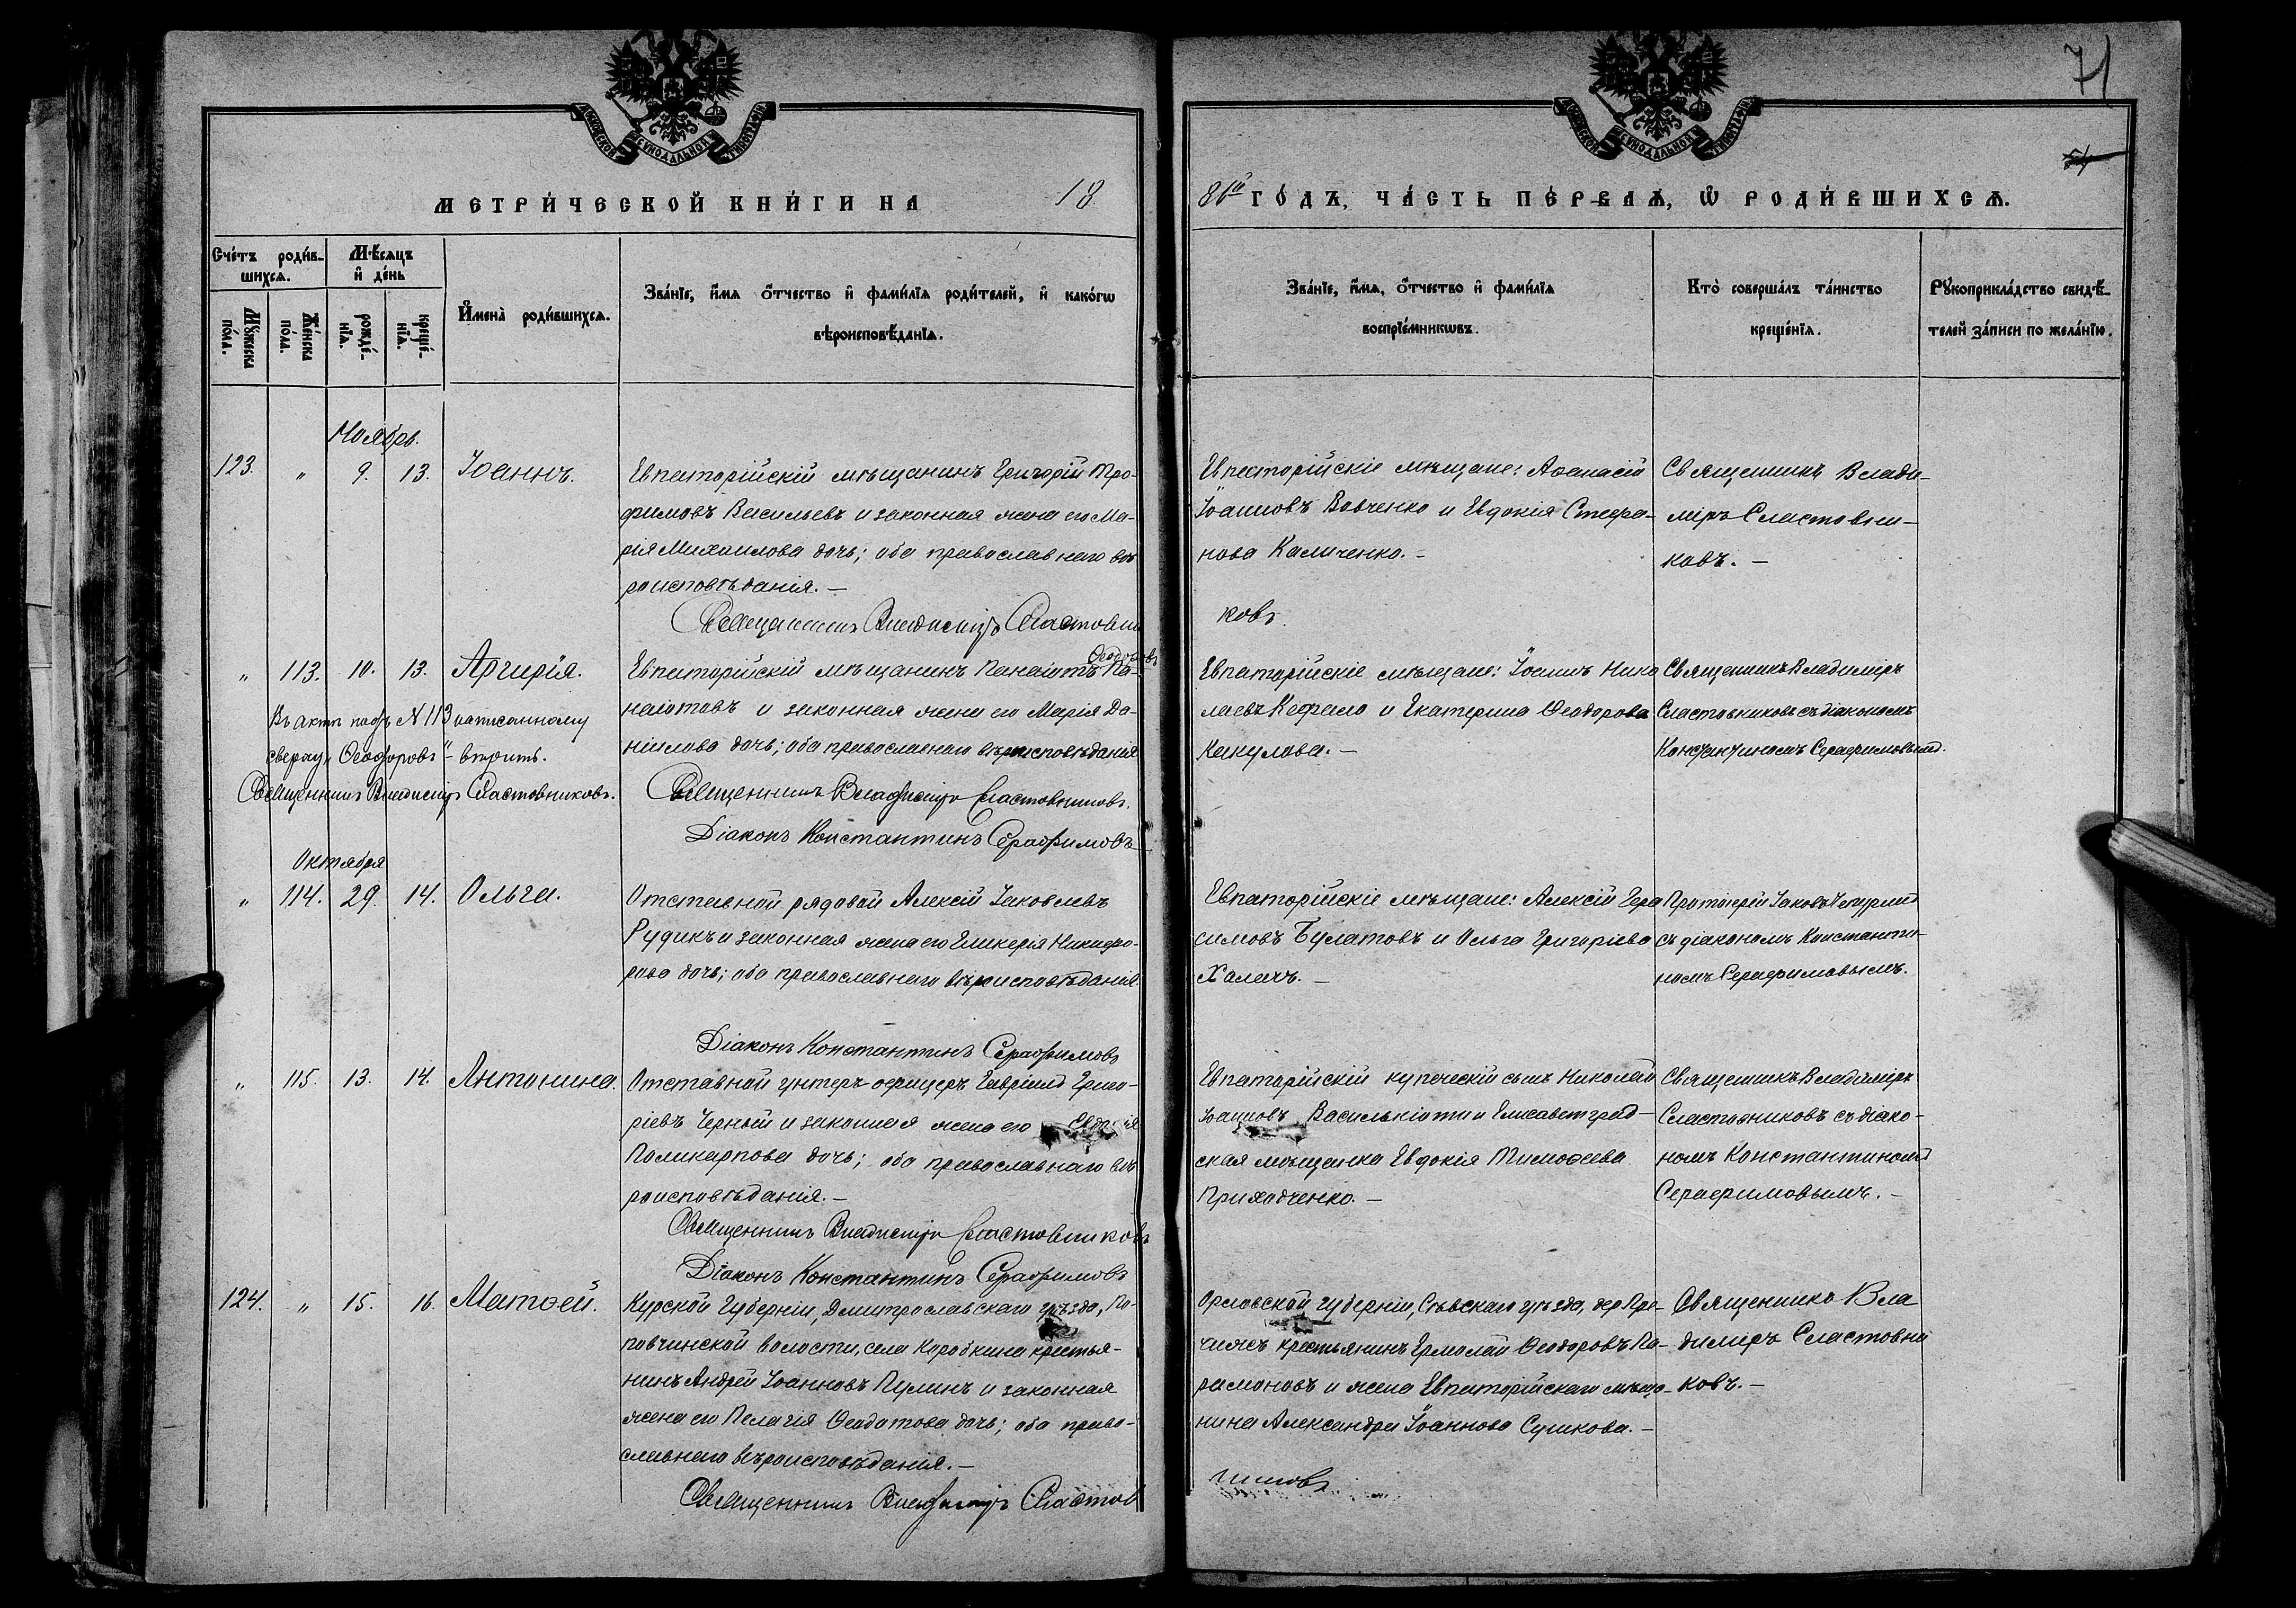 71
54
МОСКОВСКОЙ СѴНОДАЛЬНОЙ ТИПОГРАФІИ
МОСКОВСКОЙ СѴНОДАЛЬНОЙ ТИПОГРАФІИ
МЕТРИ́ЧЕСКОЙ КНИ́ГИ НА 18
86й ГО́ДЪ, ЧА́СТЬ ПЕ́РВАѦ, Ѡ҆ РОДИ́ВШИХСѦ.
Сче́тъ роди́в-
шихсѧ.
Мꙋ́жеска
по́ла.
Же́нска
по́ла.
Мѣ́сѧцъ
и҆ де́нь
рожде́-
нїѧ.
креще́-
нїѧ.
И҆мена̀ роди́вшихсѧ.
Зва́нїе, и҆́мѧ ѻ҆́тчество и҆ фами́лїѧ роди́телей, и҆ како́гѡ
вѣроисповѣ́данїѧ.
Зва́нїе, и҆́мѧ, ѻ҆́тчество и҆ фами́лїѧ
воспрїе́мникѡвъ.
Кто̀ соверша́лъ та́инство
креще́нїѧ.
Рꙋкоприкла́дство свидѣ́-
телей за́писи по жела́нїю.
Ноябрь.
123. „ 9. 13. Іоаннъ.
Евпаторійскій мѣщанинъ Григорій Тро-
фимовъ Васильевъ и законная жена его Ма-
рія Михаилова дочь; оба православнаго вѣ
роисповѣданія. —
Священникъ Владиміръ Сластовни
ковъ.
Евпаторійскіе мѣщане: Аѳанасій
Іоанновъ Вовченко и Евдокія Стефа-
нова Каличенко. —
Священникъ Влади-
міръ Сластовни-
ковъ. —
„ 113. 10. 13. Аргирія.
Въ актѣ подъ N 113 написанному
сверху „Ѳеодоровъ“ — вѣрить.
Священникъ Владиміръ Сластовниковъ.
Ѳеодоровъ
Евпаторійскій мѣщанинъ Панаіотъ Па-
наіотовъ и законная жена его Марія Да-
ніилова дочь; оба православнаго вѣроисповѣданія
Священникъ Владиміръ Сластовниковъ.
Діаконъ Константинъ Серафимовъ
Евпаторійскіе мѣщане: Іоаннъ Нико
лаевъ Кефало и Екатерина Ѳеодорова
Какулова. —
Священникъ Владиміръ
Сластовниковъ съ діакономъ
Константиномъ Серафимовымъ.
Октября
„ 114. 29. 14. Ольга.
Отставной рядовой Алексій Іаковлевъ
Рудикъ и законная жена его Гликерія Никифо-
рова дочь; оба православнаго вѣроисповѣданія.
Діаконъ Константинъ Серафимовъ
Евпаторійскіе мѣщане: Алексій Гера
симовъ Булатовъ и Ольга Григоріева
Халачъ. —
Протоіерей Іаковъ
съ діакономъ Константи-
номъ Серафимовымъ.
„ 115. 13. 14. Антонина.
Отставной унтеръ-офицеръ Гавріилъ Григо-
ріевъ Черный и законная жена его
Поликарпова дочь; оба православнаго вѣ
роисповѣданія. —
Священникъ Владиміръ Сластовниковъ
Діаконъ Константинъ Серафимовъ
Евпаторійскій купеческій сынъ Николай
Іоанновъ Василькіоти и Елисаветград-
ская мѣщанка Евдокія Тимоѳеева
Приходченко. —
Священникъ Владиміръ
Сластовниковъ съ діако-
номъ Константиномъ
Серафимовымъ. —
124. „ 15. 16. Матѳей.
Курской губерніи, Дмитрославскаго уѣзда, По-
повчинской волости, села Коробкина крестья-
нинъ Андрей Іоанновъ Пулинъ и законная
жена его Пелагія Ѳеодотова дочь; оба право-
славнаго вѣроисповѣданія. —
Священникъ Владиміръ Сластов
никовъ.
Орловской губерніи, Сѣвскаго уѣзда, дер
крестьянинъ Ермолай Ѳеодоровъ Па-
рамоновъ и жена Евпаторійскаго мѣща-
нина Александра Іоаннова Сушкова. —
Священникъ Вла
диміръ Сластовни
ковъ. —